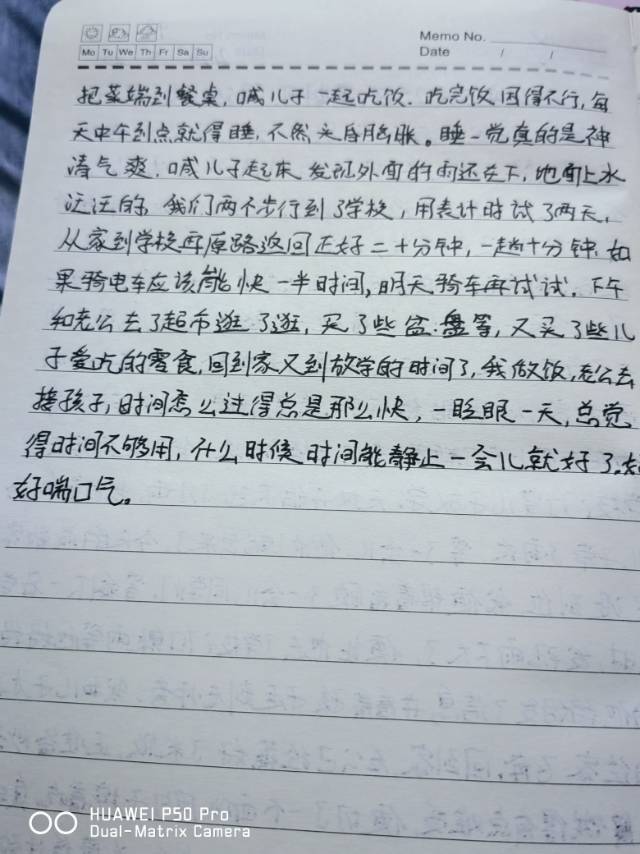 Memo No.
Mo Tu We Th Fr Sa Su
Date / /
把菜端到餐桌，喊儿子一起吃饭．吃完饭困得不行，每
天中午到点就得睡，不然头昏脑胀。睡一觉真的是神
清气爽．喊儿子起床发现外面的雨还在下，地面上水
汪汪的．我们两个步行到了学校，用表计时试了两天，
从家到学校再原路返回正好二十分钟，一趟十分钟．如
果骑电车应该能快一半时间，明天骑车再试试．下午
和老公去了超市逛了逛，买了些盆．盘等，又买了些儿
子爱吃的零食，回到家又到放学的时间了，我做饭，老公去
接孩子，时间怎么过得总是那么快，一眨眼一天，总觉
得时间不够用，什么时候时间能静止一会儿就好了．
好喘口气。
HUAWEI P50 Pro
Dual-Matrix Camera